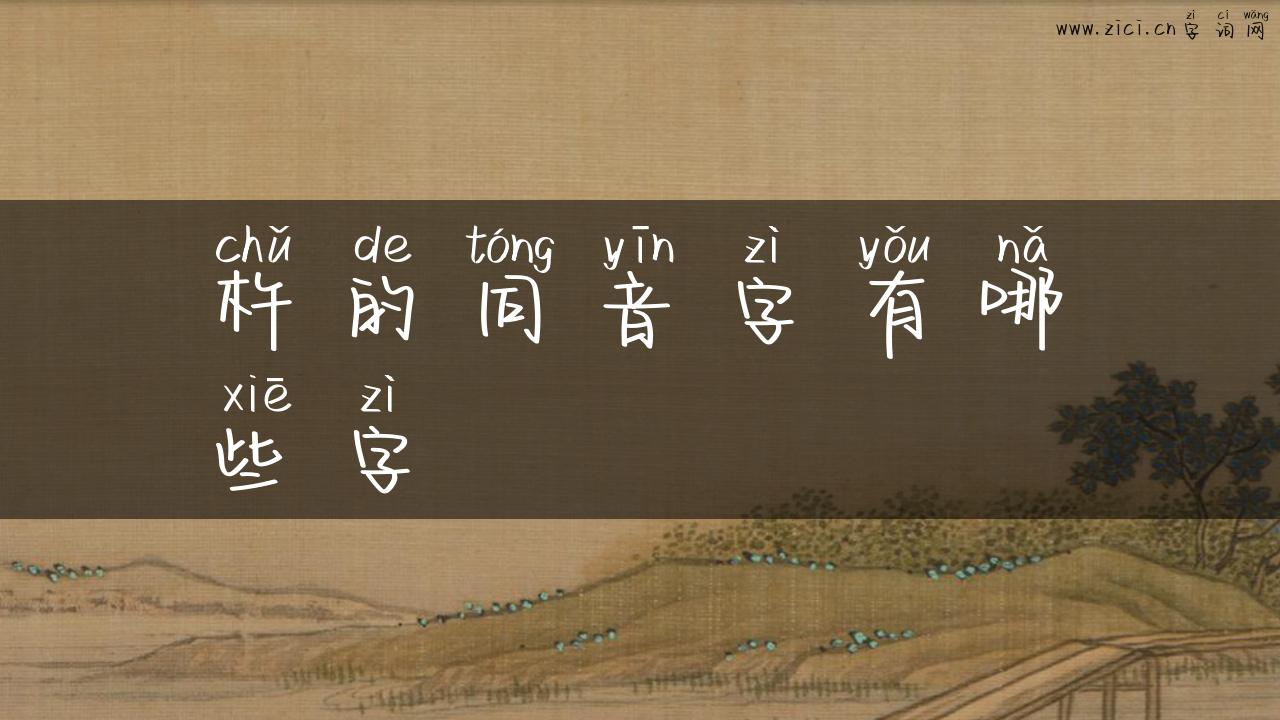 zì cí wǎng
www.zici.cn 字 词 网
chǔ de tóng yīn zì yǒu nǎ
杵 的 同 音 字 有 哪
xiē zì
些 字